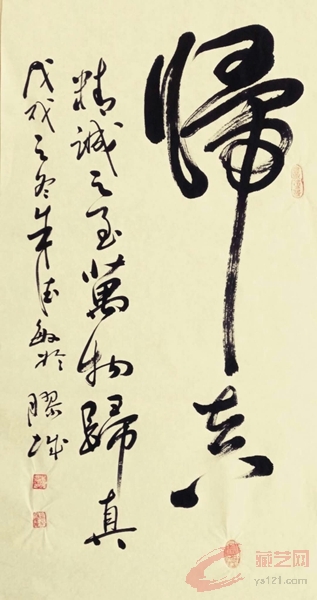 歸真
精誠之至萬物歸真
戊戌之冬朱德敏於膠城
藏艺网
ys121.com